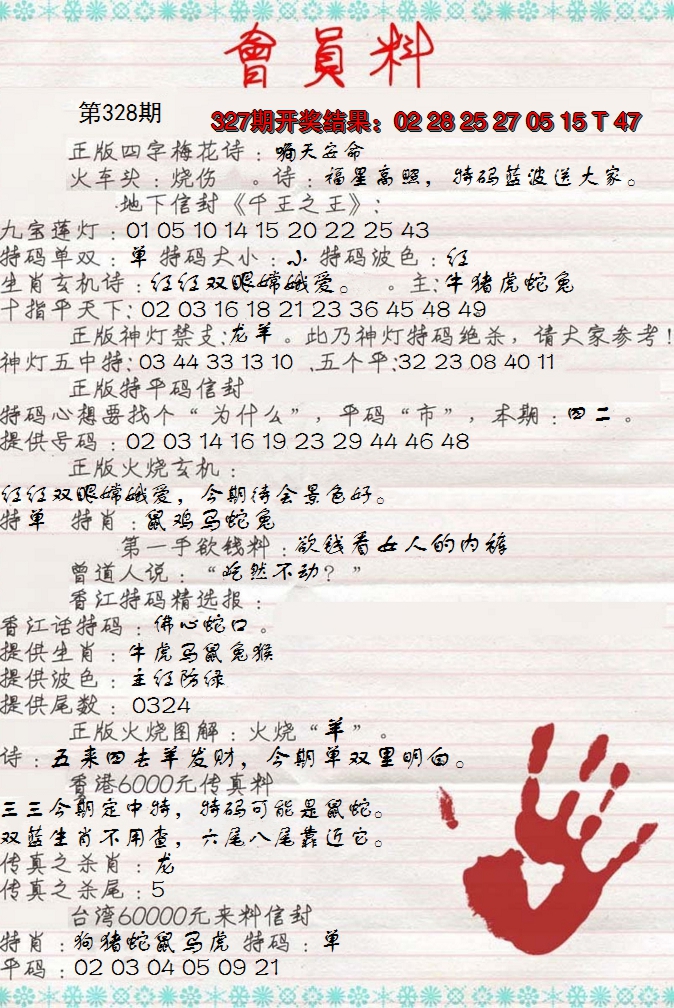 會員料
第328期
327期开奖结果：02 28 25 27 05 15 T 47
正版四字梅花诗：嘀天安命
火车头：烧伤 。诗：福星高照，特码蓝波送大家。
地下信封《千王之王》：
九宝莲灯：01 05 10 14 15 20 22 25 43
特码单双：单 特码大小：小 特码波色：红
生肖玄机诗：红红双眼嫦娥爱。 。主：牛猪虎蛇兔
十指平天下：02 03 16 18 21 23 36 45 48 49
正版神灯禁支：龙羊。此乃神灯特码绝杀，请大家参考！
神灯五中特：03 44 33 13 10 .五个平：32 23 08 40 11
正版特平码信封
特码心想要找个“为什么”，平码“市”，本期：四二。
提供号码：02 03 14 16 19 23 29 44 46 48
正版火烧玄机：
红红双眼嫦娥爱，今期待会景色好。
特单 特肖：鼠鸡马蛇兔
第一手欲钱料：欲钱看女人的内裤
曾道人说：“屹然不动？”
香江特码精选报：
香江话特码：佛心蛇口。
提供生肖：牛虎马鼠兔猴
提供波色：主红防绿
提供尾数：0324
正版火烧图解：火烧“羊”。
诗：五来四去羊发财，今期单双里明白。
香港6000元传真料
三三今期定中特，特码可能是鼠蛇。
双蓝生肖不用查，六尾八尾靠近它。
传真之杀肖：龙
传真之杀尾：5
台湾60000元来料信封
特肖：狗猪蛇鼠马虎 特码：单
平码：02 03 04 05 09 21